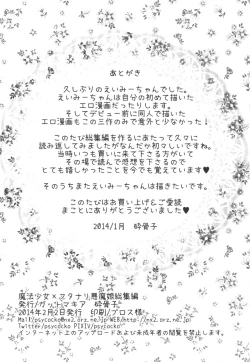 あとがき
久しぶりのえいみーちゃんでした。
えいみーちゃんは自分の初めて描いた
エロ漫画だったりします。
そしてデビュー前に同人で描いた
エロ漫画もこの三作のみで意外と少なかった↓
このたび総集編を作るにあたって久々に
読み返してみましたがなんだか初々しいですね。
当時いつも買いに来て下さる方がいて
その場で読んで感想を下さるので
とても嬉しかったことを今でも覚えています♥
そのうちまたえいみーちゃんは描きたいです。
このたびはお買い上げ&ご愛読
まことにありがとうございました♥
2014/1月 砕骨子
魔法少女×フタナリ悪魔娘総集編
発行/ガットマキア 砕骨子
2014年2月2日発行 印刷/プロス様
インターネット上のアップロードおよび未成年者の閲覧を禁止します。